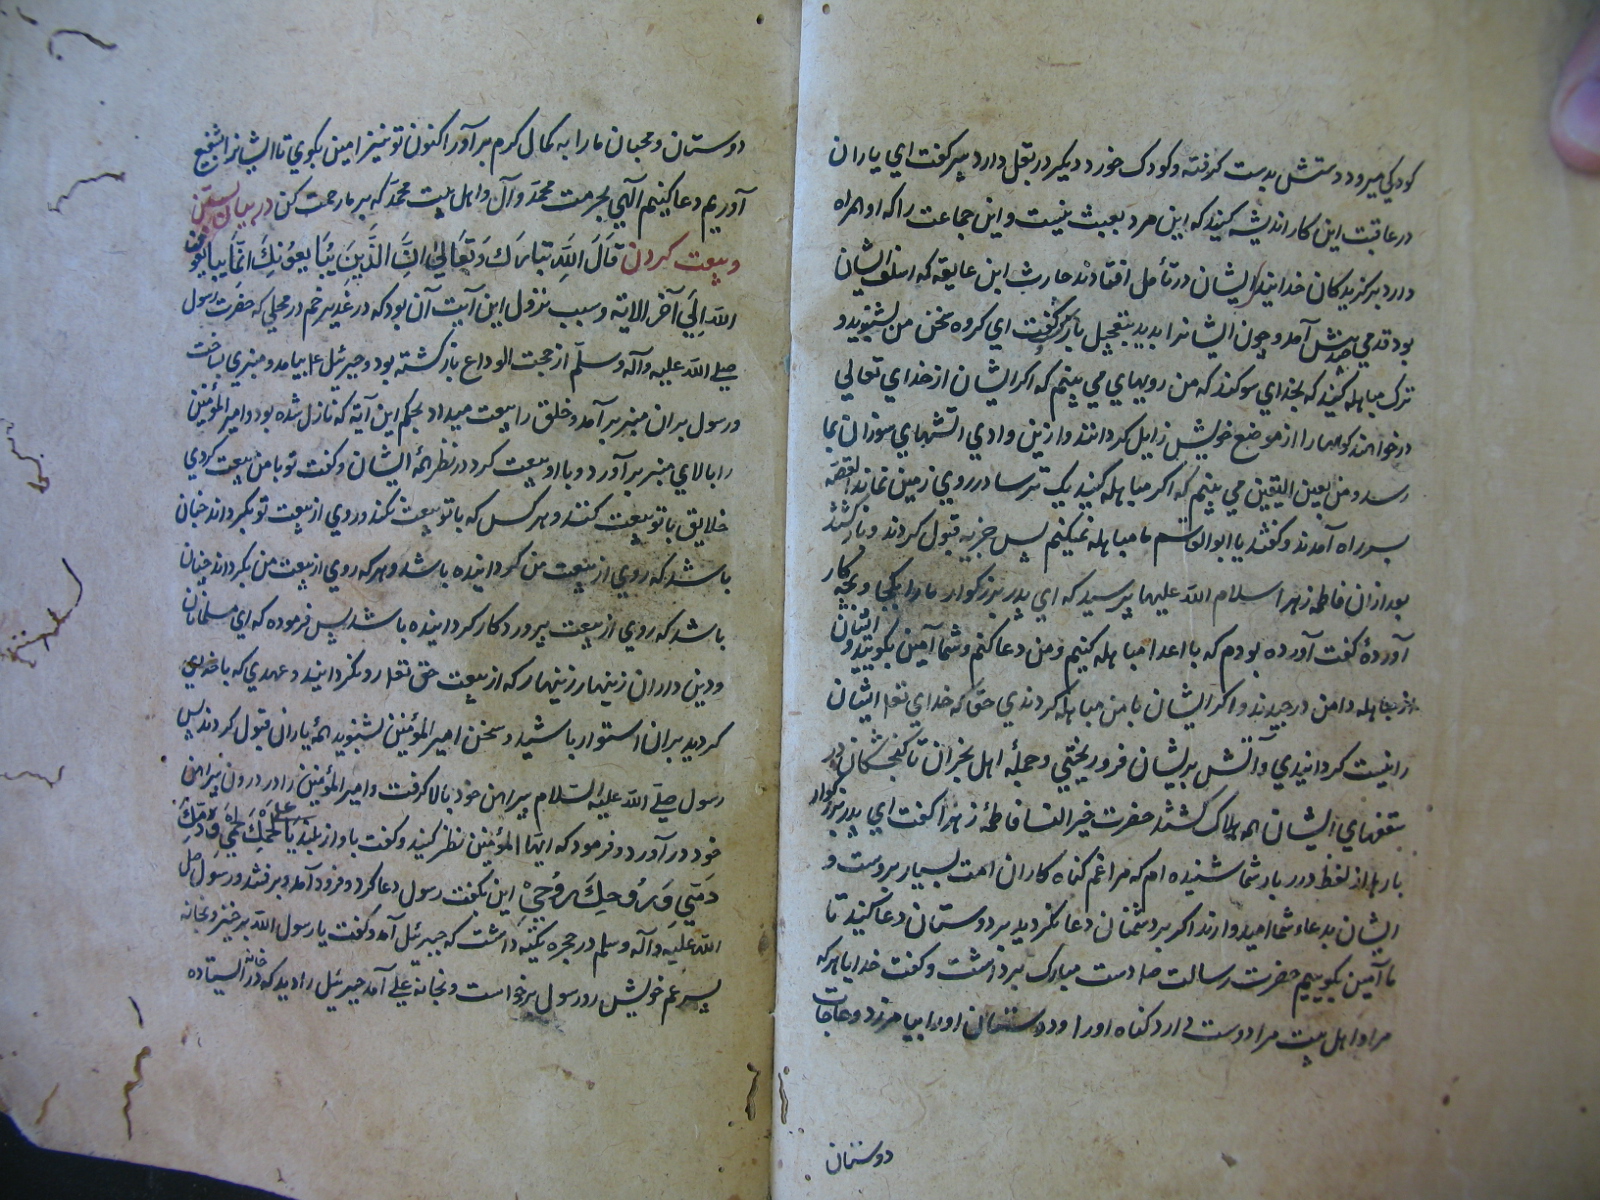 کودکی میرود دستش بدست کرفته وکودک خورد دیکر در بغل دارد پیر کفت ای یاران
در عاقبت این کار اندیشه کنید که این مرد بعبث نیست و این جماعت را که او همراه
دارد برکزیدکان خدایند ایشان در تأمل افتادند حارث ابن عایقه که اسلف ایشان
بود قدمی چند پیش آمد و چون ایشانرا بدید بتعجیل بازکشت کفت ای کروه سخن من بشنوید و
ترک مباهله کنید که بخدای سوکند که من رویهای می بینم که اکر ایشان از خدای تعالی
درخواهند کوهها را از موضع خویش زایل کردانند و ازین وادی آتشهای سوزان بما
رسد و من بعین الیقین می بینم که اکر مباهله کنید یک ترسا در روی زمین نماند القصه
بر سر راه آمدند و کفتند یا ابوالقاسم ما مباهله نمیکنیم پس جزیه قبول کردند و بازکشتند
بعد ازان فاطمه زهرا سلام الله علیها پرسید که ای پدر بزرکوار مارا بکجا و بچه کار
آوردهٔ کفت آورده بودم که با اعدا مباهله کنیم و من دعا کنم و شما آمین بکویید و ایشان
از مباهله دامن درچیدند و اکر ایشان با من مباهله کردندی حقا که خدای تعا ایشان
را نیست کردانیدی و آتش بریشان فرو ریختی و جملهٔ اهل نجران تا کنجشکان در
سقفهای ایشان همه هلاک کشتند حضرت خیر النسا فاطمهٔ زهرا کفت ای پدر بزرکوار
بارها از لفظ درر بار شما شنیده ام که مرا غم کناه کاران امت بسیار بروست و
ایشان بدعاء شما امیدوارند اکر بر دشمنان دعا نکردید بر دوستان دعا کنید تا
ما آمین بکوییم حضرت رسالت صا دست مبارک برداشت و کفت خدایا هر که
مرا و اهل بیت مرا دوست دارد کناه اورا و دوستان اورا بیامرزد و حاجات
دوستان
دوستان و محبان مارا به کمال کرم برآور اکنون تو نیز امین بکوی تا ایشانرا شفیع
آوریم دعا کنیم آلهی بحرمت محمد و آل و اهل بیت محمد که بر ما رحمت کن در بیان بستن
و بیعت کردن قال الله تبارک و تعالی ان الذین یبایعونک انما یبایعون
الله الی آخر الایه و سبب نزول این آیت آن بود که در غدیر خم در محلی که حضرت رسول
صلی الله علیه وآله وسلم از حجت الوداع بازکشته بود و جبرئیل ع بیامد و منبری بساخت
و رسول بران منبر برآمد و خلق را بیعت میداد بحکم این آیه که نازل شده بود و امیر المؤمنین
را بالای منبر برآورد و با او بیعت کرد در نظر همهٔ ایشان و کفت تو با من بیعت کردی
خلایق با تو بیعت کنند و هر کس که با تو بیعت نکند و روی از بیعت تو بکرداند چنان
باشد که روی از بیعت من کردانیده باشد و هر که روی از بیعت من بکرداند چنان
باشد که روی از بیعت پروردکار کردانیده باشد پس فرموده که ای مسلمانان
و دین داران زینهار زینهار که از بیعت حق تعا رو نکردانید و عهدی که با خدای
کردید بران استوار باشید و سخن امیر المؤمنین بشنوید همهٔ یاران قبول کردند پس
رسول صلی الله علیه السلام پیراهن خود بالا کرفت و امیر المؤمنین را در درون پیراهن
خود درآورد و فرمود که ایها المؤمنین نظر کنید و کفت باواز بلند یا علی لحمک لحمی و دمک
دمی و روحک روحی این بکفت رسول دعا کرد و فرود آمد و برفتند و رسول صلی
الله علیه وآله وسلم در حجره تکیه داشت که جبرئیل آمد و کفت یا رسول الله برخیز و بخانه
پسر عم خویش رو رسول برخواست و بخانه علی آمد جبرئیل را دید که در خانه ایستاده